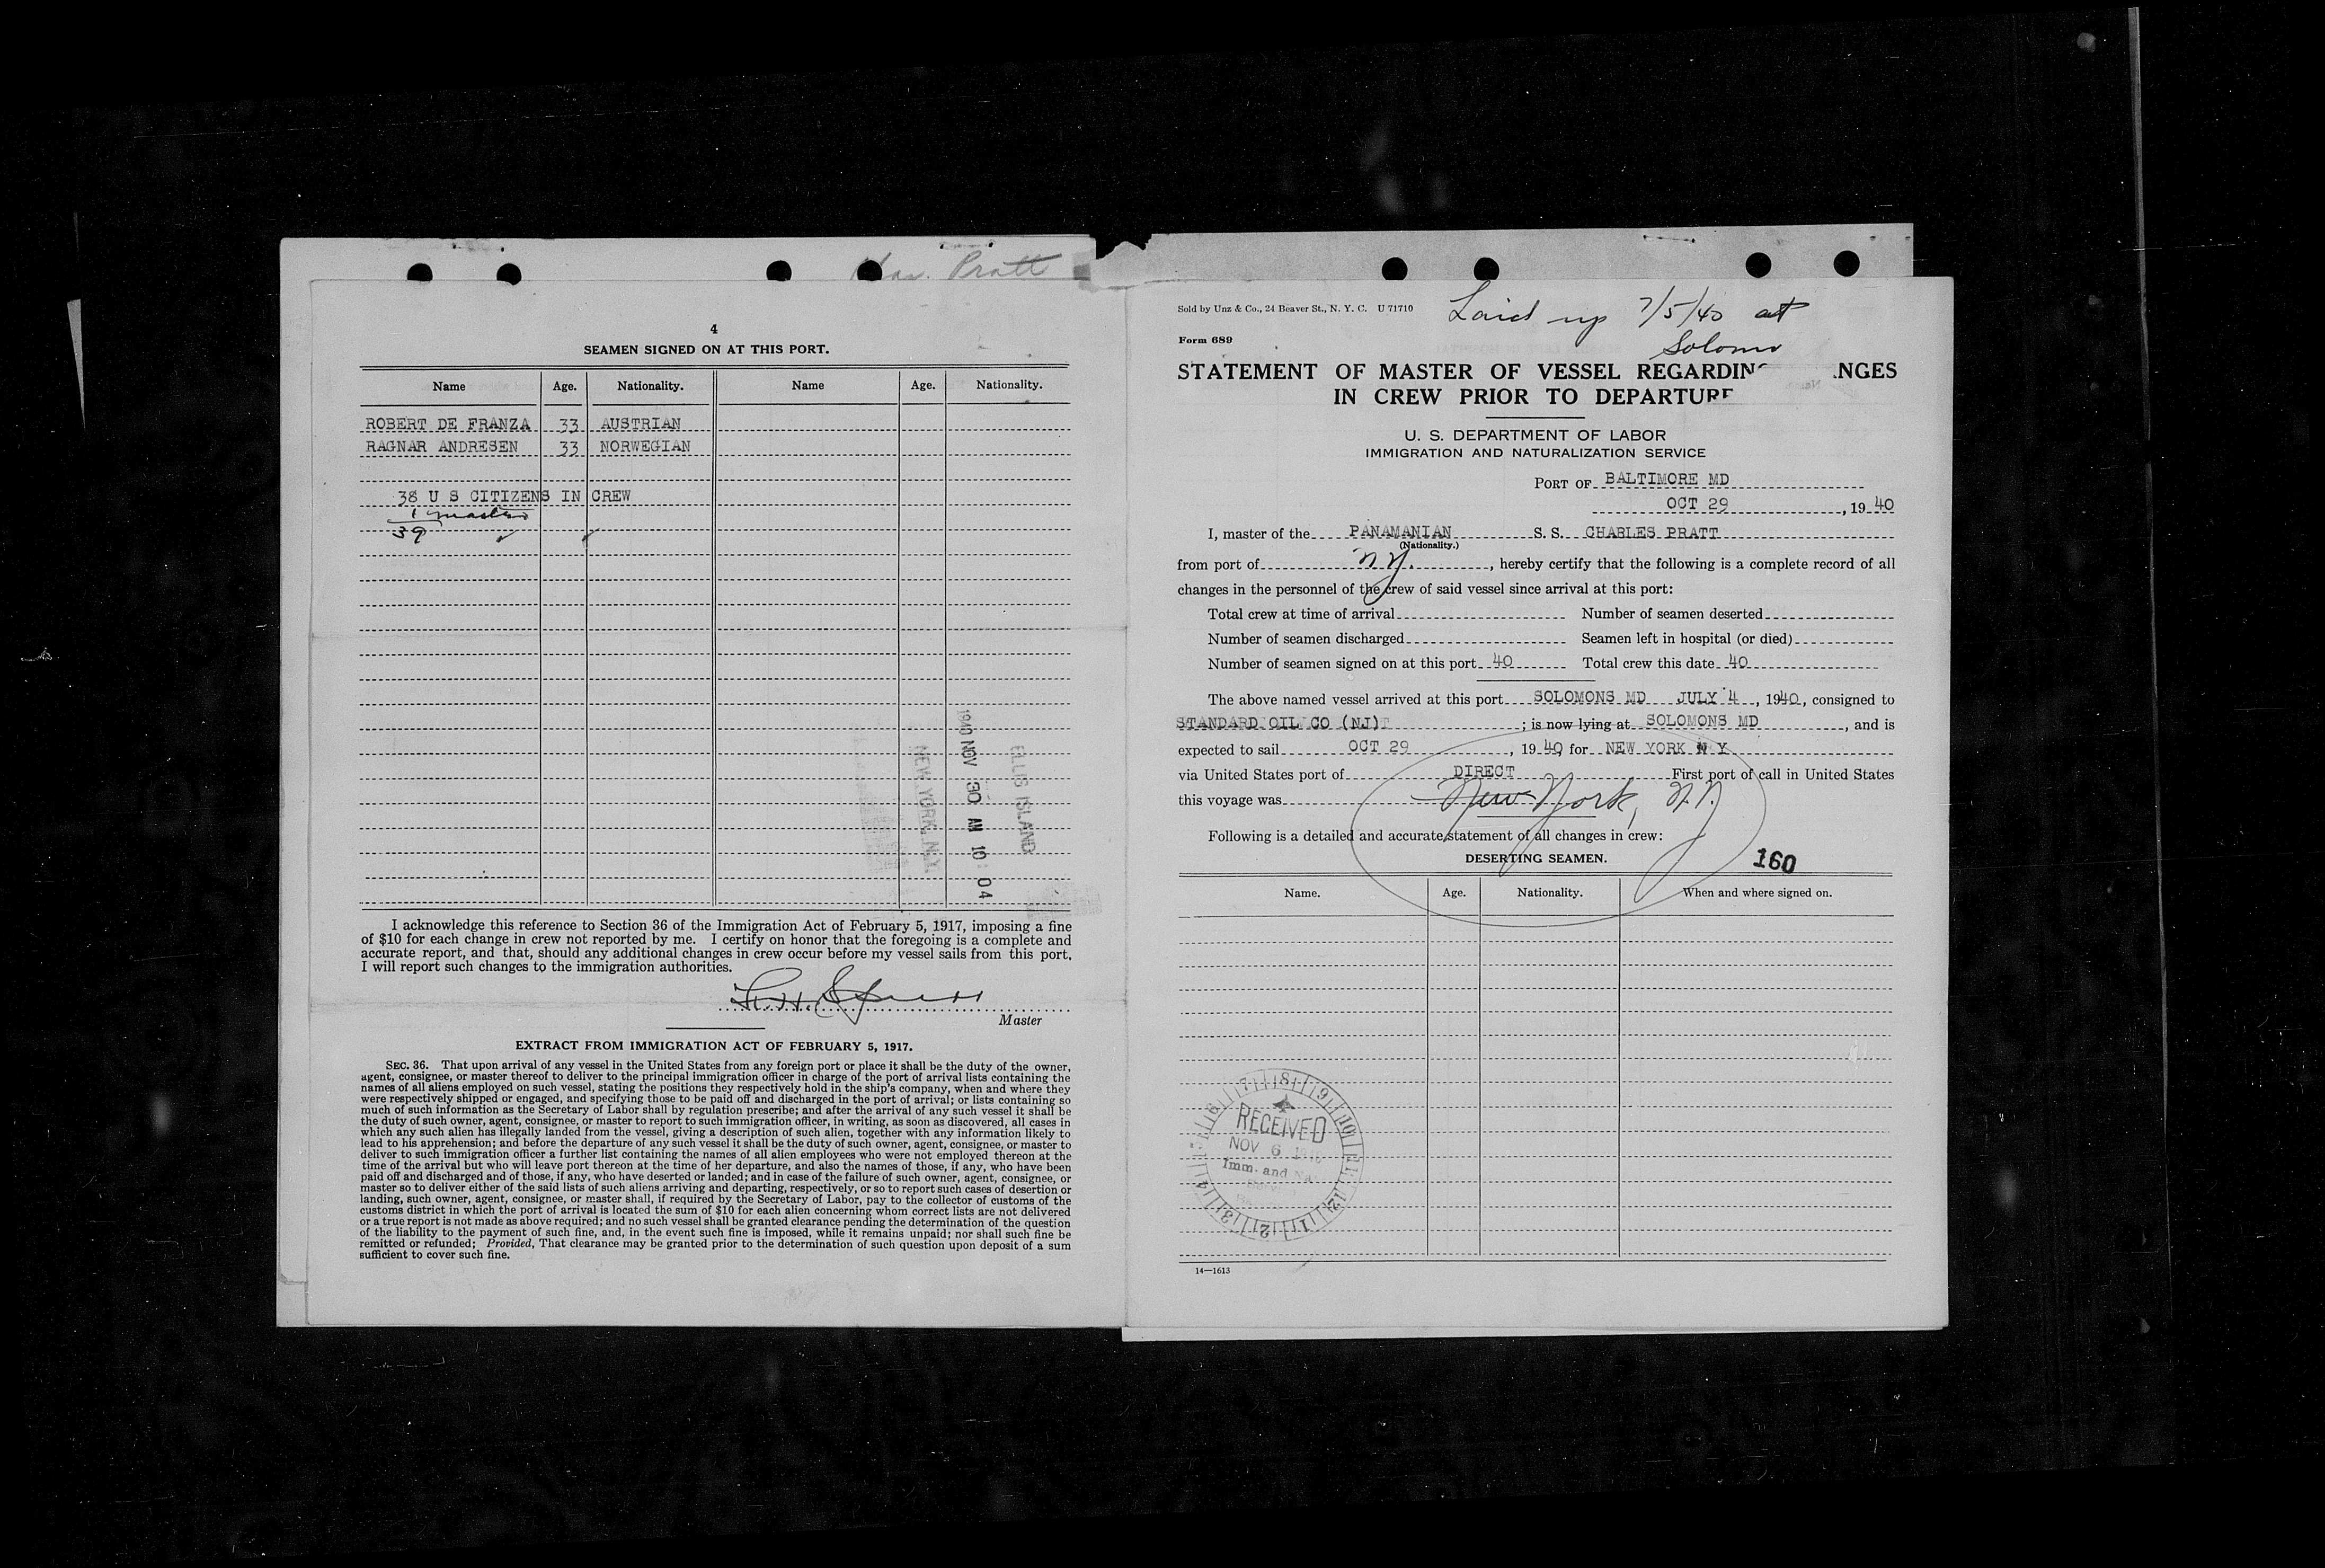 Pratt
4
SEAMEN SIGNED ON AT THIS PORT.
Name Age. Nationality. Name Age. Nationality.
ROBERT DE FRANZA 33 AUSTRIAN
RAGNAR ANDRESEN 33 NORWEGIAN
38 U S CITIZENS IN CREW
1 master
39
ELLIS ISLAND
1940 NOV 30 AM 10:04
NEW YORK, N.Y.
I acknowledge this reference to Section 36 of the Immigration Act of February 5, 1917, imposing a fine
of $10 for each change in crew not reported by me. I certify on honor that the foregoing is a complete and
accurate report, and that, should any additional changes in crew occur before my vessel sails from this port,
I will report such changes to the immigration authorities.
Master
EXTRACT FROM IMMIGRATION ACT OF FEBRUARY 5, 1917.
SEC. 36. That upon arrival of any vessel in the United States from any foreign port or place it shall be the duty of the owner,
agent, consignee, or master thereof to deliver to the principal immigration officer in charge of the port of arrival lists containing the
names of all aliens employed on such vessel, stating the positions they respectively hold in the ship's company, when and where they
were respectively shipped or engaged, and specifying those to be paid off and discharged in the port of arrival; or lists containing so
much of such information as the Secretary of Labor shall by regulation prescribe; and after the arrival of any such vessel it shall be
the duty of such owner, agent, consignee, or master to report to such immigration officer, in writing, as soon as discovered, all cases in
which any such alien has illegally landed from the vessel, giving a description of such alien, together with any information likely to
lead to his apprehension; and before the departure of any such vessel it shall be the duty of such owner, agent, consignee, or master to
deliver to such immigration officer a further list containing the names of all alien employees who were not employed thereon at the
time of the arrival but who will leave port thereon at the time of her departure, and also the names of those, if any, who have been
paid off and discharged and of those, if any, who have deserted or landed; and in case of the failure of such owner, agent, consignee, or
master so to deliver either of the said lists of such aliens arriving and departing, respectively, or so to report such cases of desertion or
landing, such owner, agent, consignee, or master shall, if required by the Secretary of Labor, pay to the collector of customs of the
customs district in which the port of arrival is located the sum of $10 for each alien concerning whom correct lists are not delivered
or a true report is not made as above required; and no such vessel shall be granted clearance pending the determination of the question
of the liability to the payment of such fine, and, in the event such fine is imposed, while it remains unpaid; nor shall such fine be
remitted or refunded; Provided, That clearance may be granted prior to the determination of such question upon deposit of a sum
sufficient to cover such fine.
Sold by Unz & Co., 24 Beaver St., N. Y. C. U 71710
Laid up 7/5/40 at
Solomo
Form 689
STATEMENT OF MASTER OF VESSEL REGARDING ANGES
IN CREW PRIOR TO DEPARTURE
U. S. DEPARTMENT OF LABOR
IMMIGRATION AND NATURALIZATION SERVICE
PORT OF BALTIMORE MD
OCT 29, 1940
I, master of the PANAMANIAN S. S. CHARLES PRATT
(Nationality.)
from port of N.Y., hereby certify that the following is a complete record of all
changes in the personnel of the crew of said vessel since arrival at this port:
Total crew at time of arrival Number of seamen deserted
Number of seamen discharged Seamen left in hospital (or died)
Number of seamen signed on at this port 40 Total crew this date 40
The above named vessel arrived at this port SOLOMONS MD JULY 4, 1940, consigned to
STANDARD OIL CO (NJ); is now lying at SOLOMONS MD, and is
expected to sail OCT 29, 1940, for NEW YORK N Y
via United States port of DIRECT First port of call in United States
this voyage was New York, N.Y.
Following is a detailed and accurate statement of all changes in crew:
DESERTING SEAMEN.
160
Name. Age. Nationality. When and where signed on.
RECEIVED
NOV 6
Imm. and
14—1613